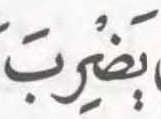 يَضْرِبَ